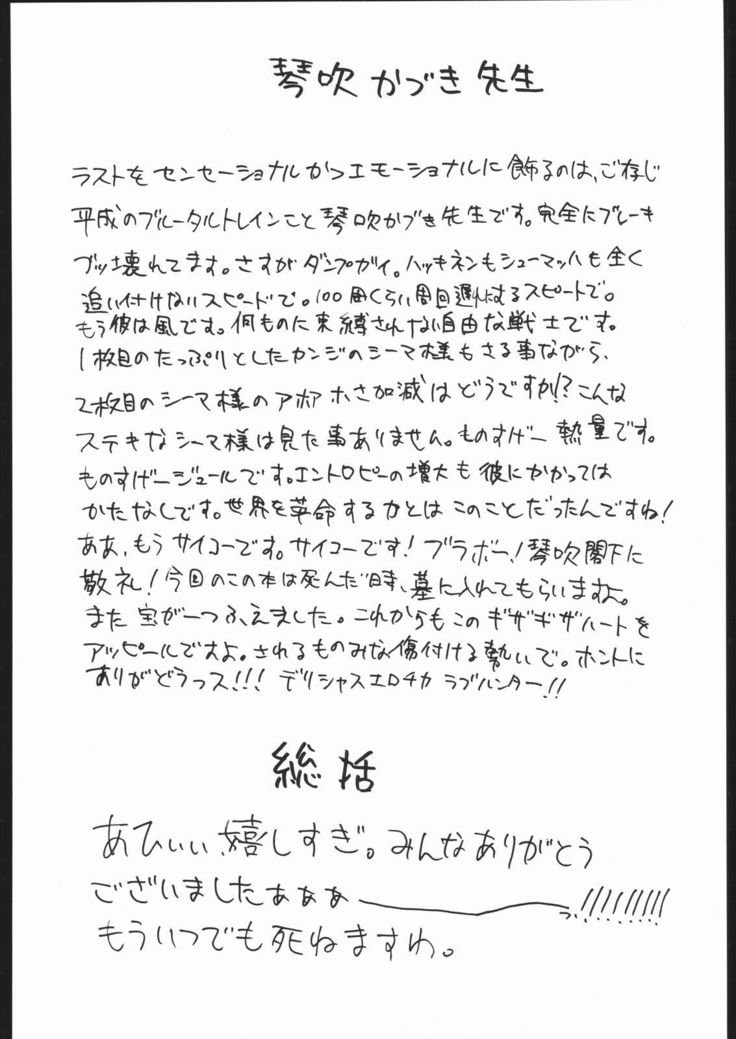 琴吹かづき先生
ラストをセンセーショナルかつエモーショナルに飾るのは、ご存じ
平成のブルータルトレインこと琴吹かづき先生です。完全にブレーキ
ブッ壊れてます。さすがダンプガイ。ハッキネンもシューマッハも全く
追い付けないスピードで。100周くらい周回遅れにするスピードで。
もう彼は風です。何ものに束縛されない自由な戦士です。
1枚目のたっぷりとしたカンジのシーマ様もさる事ながら、
2枚目のシーマ様のアホアホさ加減はどうですか!?こんな
ステキなシーマ様は見た事ありません。ものすげー熱量です。
ものすげージュールです。エントロピーの増大も彼にかかっては
かたなしです。世界を革命する力とはこのことだったんですね!
ああ、もうサイコーです。サイコーです!ブラボー!琴吹閣下に
敬礼!今回のこの本は死んだ時、墓に入れてもらいますよ。
また宝が一つふえました。これからもこのギザギザハートを
アッピールですよ。されるものみな傷付ける勢いで。ホントに
ありがどうっス!!!デリシャスエロチカラブハンター!!
総括
あひぃぃ、嬉しすぎ。みんなありがとう
ございましたぁぁぁ──────っ!!!!!!!!!
もういつでも死ねますわ。